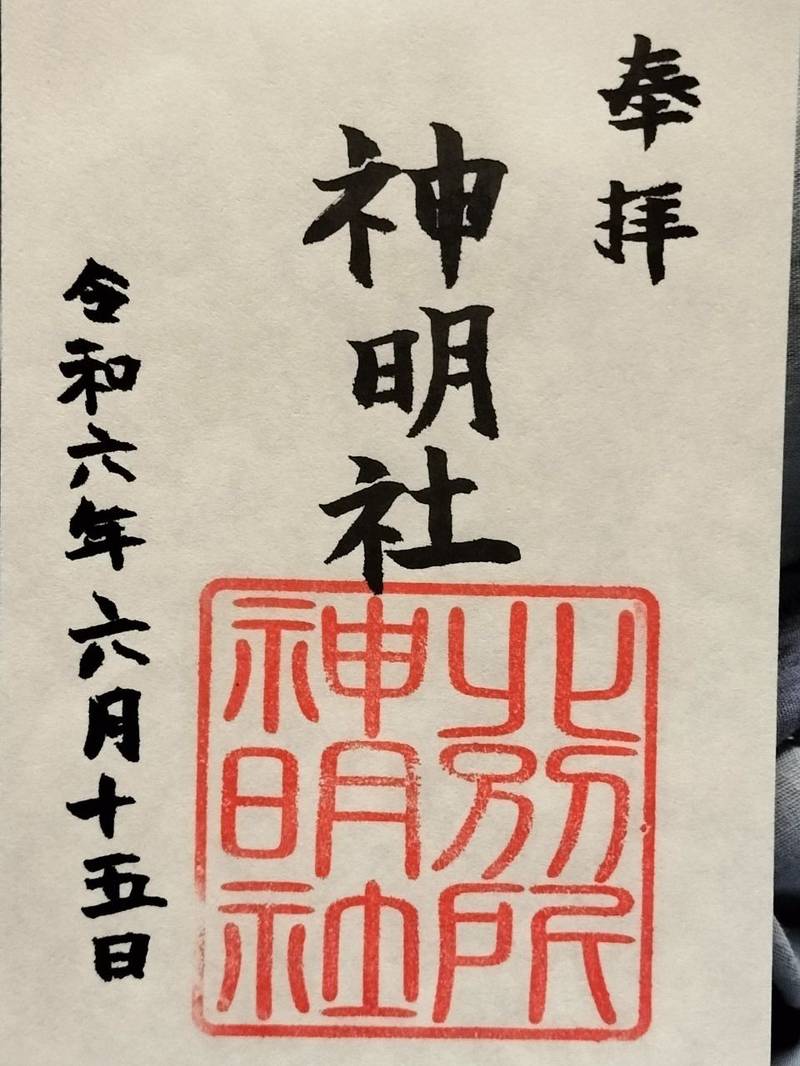 奉拝
神明社
北別所
神明社
令和六年六月十五日